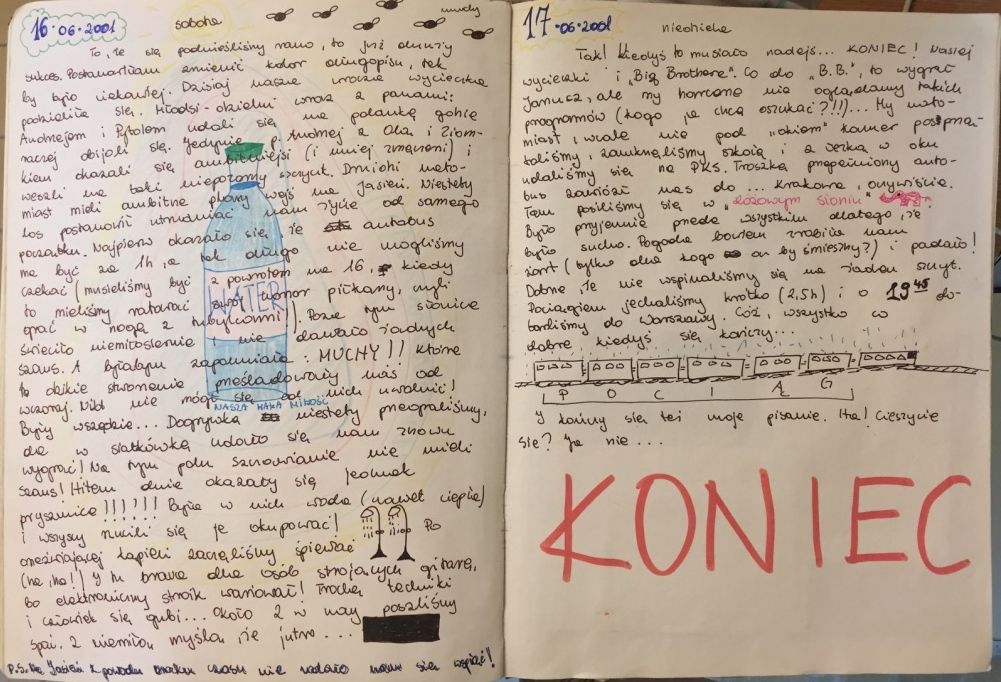 16.06.2001
sobota
muchy
To, że się podnieśliśmy rano, to już duży
sukces. Postanowiłam zmienić kolor długopisu, tak
by było ciekawiej. Dzisiaj nasze urocze wycieczka
podzieliła się. Młodsi-dzielni wraz z panami:
Andrzejem i Pytolem udali się na polankę gdzie
raczej obijali się. Jedynie p. Andrzej z Olą i Ziom-
kiem okazali się ambitniejsi (i mniej zmęczeni) i
weszli na taki niepozorny szczyt. Druhowie nato-
miast mieli ambitne plany wejś na Jasień. Niestety
los postanowił utrudniać nam życie od samego
początku. Najpierw okazało się, że autobus
ma być za 1h, a tak długo nie mogliśmy
czekać (musieliśmy być z powrotem na 16, kiedy
to mieliśmy ratować swój honor piłkarzy, czyli
grać w nogę z tubylcami). Poza tym słońce
świeciło niemiłosiernie i nie dawało żadnych
szans. A byłabym zapomniała: MUCHY!! które
to dzikie stworzenia prześladowały nas od
wczoraj. Nikt nie mógł się od nich uwolnić!
Były wszędzie... Dogrywkę niestety przegraliśmy,
ale w siatkówkę udało się nam znowu
wygrać! Na tym polu szanowanie nie mieli
szans! Hitem dnia okazały się jednak
prysznice!!!!!! Była w nich woda (nawet ciepła)
i wszyscy rzucili się je okupować! Po
orzeźwiającej kąpieli zaczęliśmy śpiewać
(ha, ha!) I tu brawa dla osób strojących gitarę,
bo elektroniczny stroik wariował! Trochę techniki
i człowiek się gubi... Około 2 w nocy poszliśmy
spać. Z niemiłą myślą, że jutro...
P.S. Na Jasień z powodu braku czasu nie udało nam się wspiąć!
WATER
NASZA MAŁA MIŁOŚĆ
17.06.2001
niedziela
Tak! Kiedyś to musiało nadejś... KONIEC! Naszej
wycieczki i „Big Brothera". Co do „B.B.", to wygrał
Janusz, ale my harcerze nie oglądamy takich
programów (kogo ja chcę oszukać?!!)... My nato-
miast, wcale nie pod „okiem" kamer posprzą-
taliśmy, zamknęliśmy szkołę i z łezką w oku
udaliśmy się na PKS. Troszkę przepełniony auto-
bus zawiózł nas do... Krakowa, oczywiście.
Tam posililiśmy się w „różowym słoniu".
Było przyjemnie przede wszystkim dlatego, że
było sucho. Pogoda bowiem zrobiła nam
żart (tylko dla kogo on by śmieszny?) i padało!
Dobrze, że nie wspinaliśmy się na żaden szczyt.
Pociągiem jechaliśmy krótko (2,5h) i o 19 45 do-
tarliśmy do Warszawy. Cóż, wszystko co
dobre kiedyś się kończy...
P O C I Ą G
I kończy się też moje pisanie. Ha! Cieszycie
się? Ja nie...
KONIEC